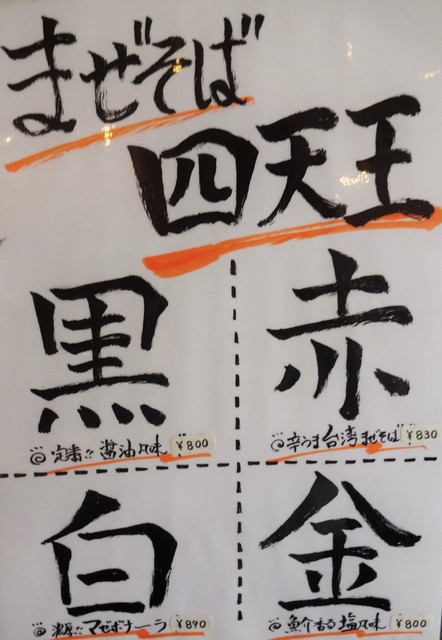 まぜそば
四天王
黒
定番!! 醤油風味 ¥800
赤
辛うま台湾まぜそば ¥830
白
濃厚!! マゼボナーラ ¥890
金
魚介香る塩風味 ¥800